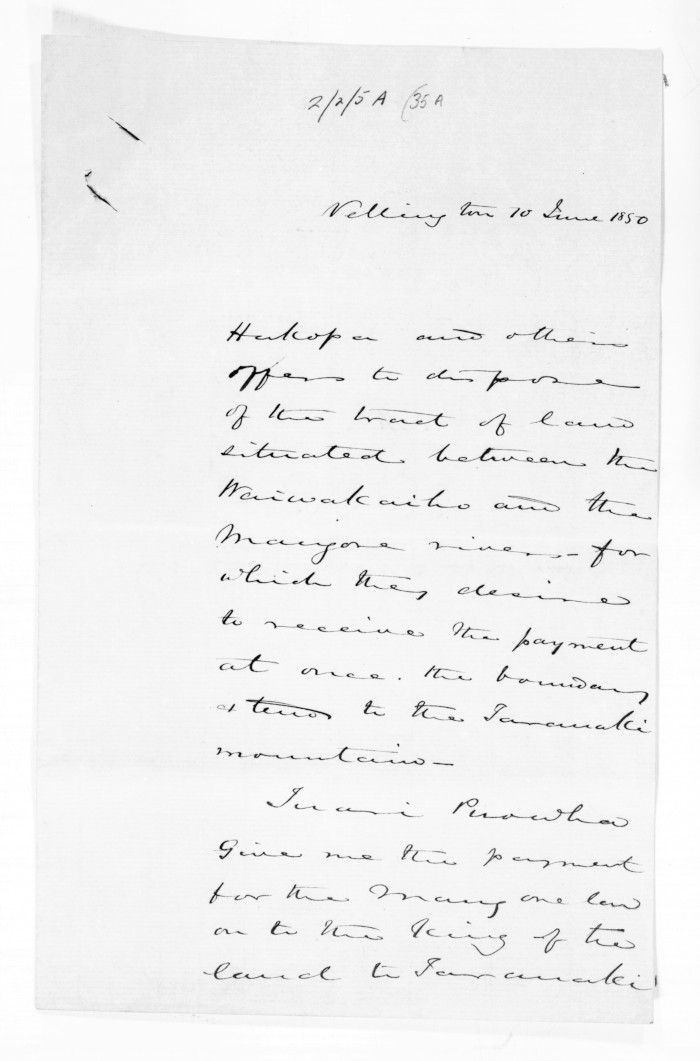 2/2/5A (35A
Wellington 10 June 1850
Hakopa and others
offers to dispose
of the tract of land
situated between the
Waiwakaiho and the
Mangone river - for
which they desire
to receive the payment
at once. the boundary
extends to the Taranaki
mountain -
Give me the payment
for the Mangone land
on to the King of the
land to Taranaki